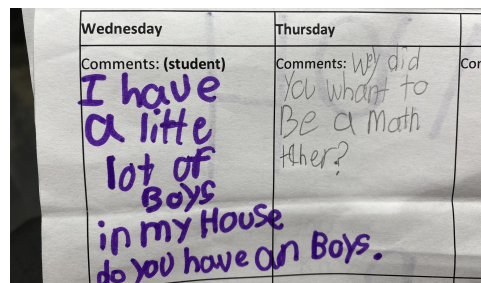 Wednesday
Comments: (student)
I have
a litte
lot of
Boys
in my House
do you have an Boys.
Thursday
Comments: Wey did
You whant to
Be a math
tther?
Cor